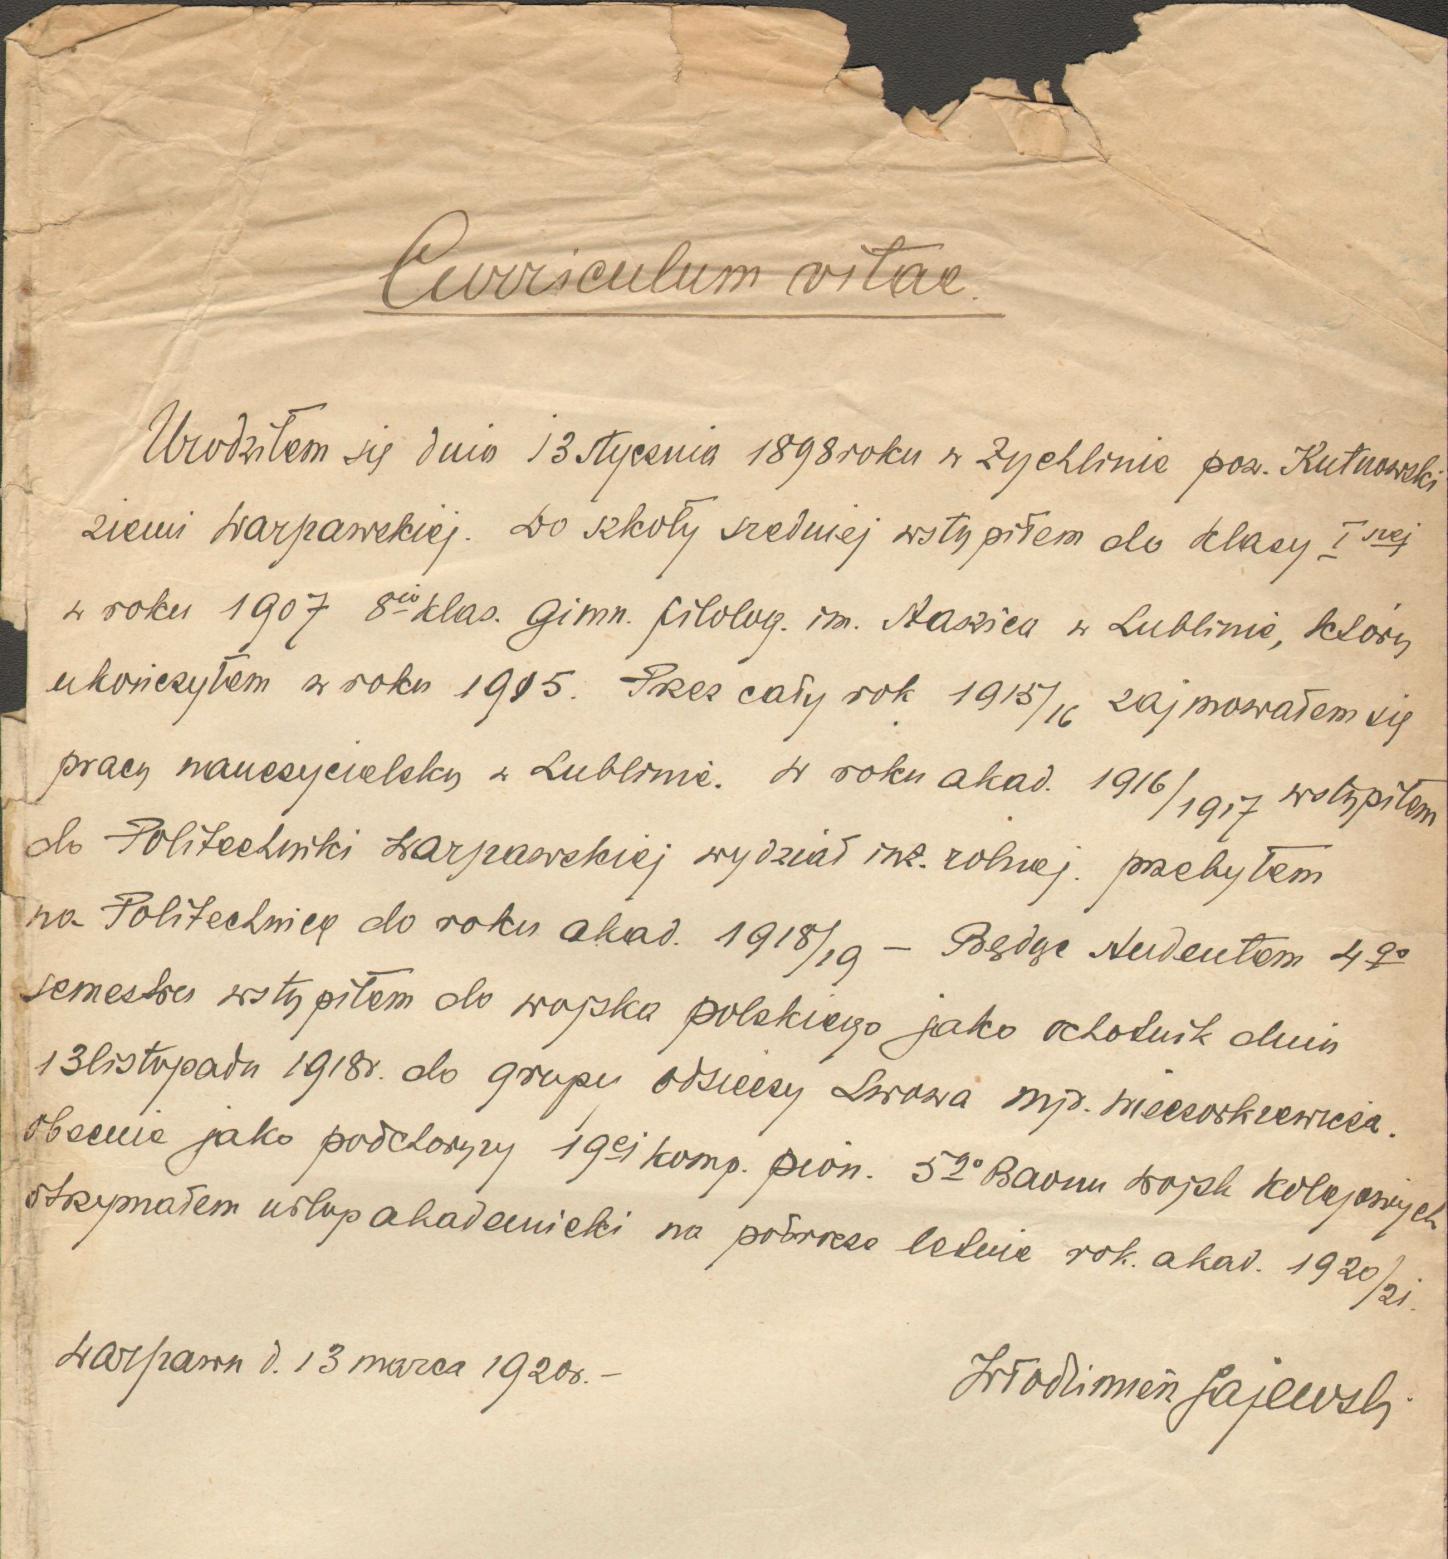 Curriculum vitae.
Urodziłem się dnia 13 stycznia 1898 roku w Żychlinie pow. Kutnowski
ziemi Warszawskiej. Do szkoły średniej wstąpiłem do klasy I szej
w roku 1907 8io klas. Gimn. filolog. im. Staszica w Lublinie, którą
ukończyłem w roku 1915. Przez cały rok 1915/16 zajmowałem się
pracą nauczycielską w Lublinie. W roku akad. 1916/1917 wstąpiłem
do Politechniki Warszawskiej wydział inż. rolnej. przebyłem
na Politechnice do roku akad. 1918/19 – Będąc studentem 4go
semestru wstąpiłem do wojska polskiego jako ochotnik dnia
13 listopada 1918r. do grupy odsieczy Lwowa mjr. Wieczorkiewicza.
obecnie jako podchorąży 19ej komp. pion. 5go Baonu Wojsk Kolejowych
otrzymałem urlop akademicki na półrocze letnie rok. akad. 1920/21.
Warszawa d. 13 marca 1920r. –
Włodzimierz Gajewski